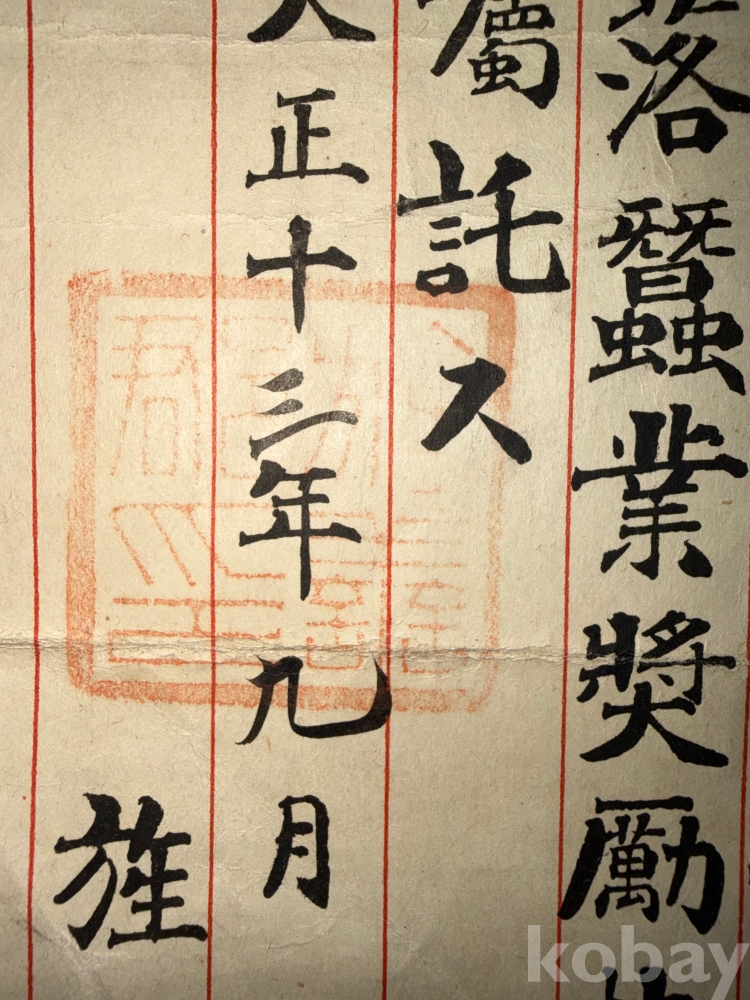 落蠶業獎勵
囑託ス
大正十三年九月
旌
kobay